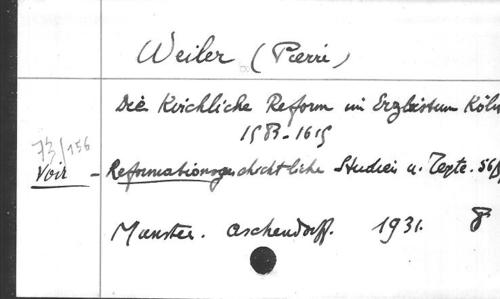 Weiler (Pierre)
Die Kirchliche Reform im Erzbistum Köln
1583-1615
73/156
Voir - Reformationsgeschichtliche Studien u. Texte. 56/
Munster. Aschendorff. 1931. 8